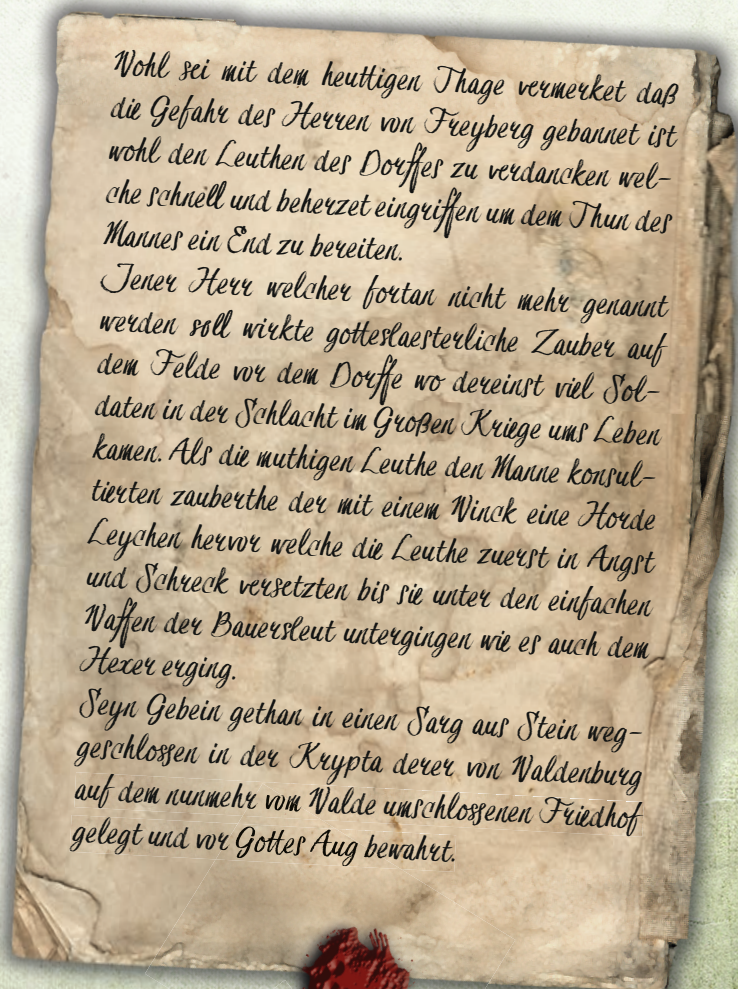 Wohl sei mit dem heuttigen Thage vermerket daß
die Gefahr des Herren von Freyberg gebannet ist
wohl den Leuthen des Dorffes zu verdancken wel-
che schnell und beherzet eingriffen um dem Thun des
Mannes ein End zu bereiten.
Jener Herr welcher fortan nicht mehr genannt
werden soll wirkte gotteslaesterliche Zauber auf
dem Felde vor dem Dorffe wo dereinst viel Sol-
daten in der Schlacht im Großen Kriege ums Leben
kamen. Als die muthigen Leuthe den Manne konsul-
tierten zauberthe der mit einem Winck eine Horde
Leychen hervor welche die Leuthe zuerst in Angst
und Schreck versetzten bis sie unter den einfachen
Waffen der Bauersleut untergingen wie es auch dem
Hexer erging.
Seyn Gebein gethan in einen Sarg aus Stein weg-
geschlossen in der Krypta derer von Waldenburg
auf dem nunmehr vom Walde umschlossenen Friedhof
gelegt und vor Gottes Aug bewahrt.